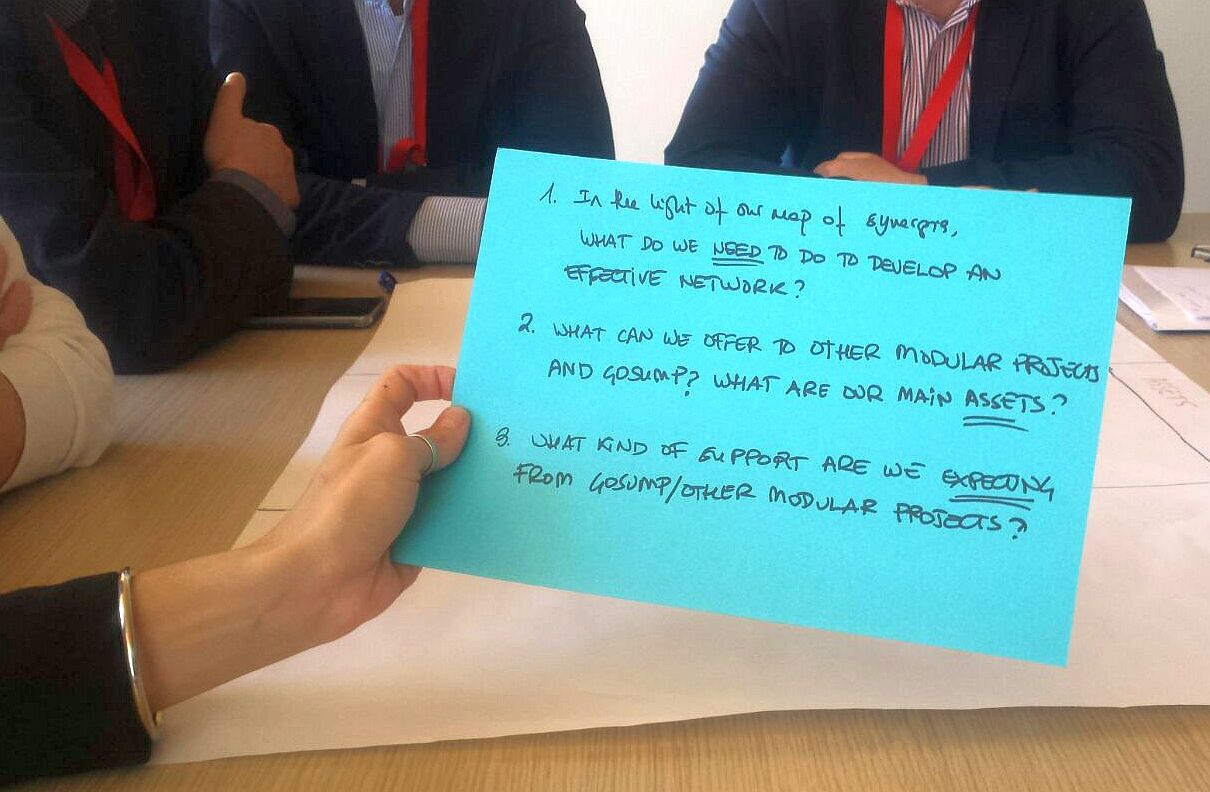 1. In the light of our map of synergies,
WHAT DO WE NEED TO DO TO DEVELOP AN
EFFECTIVE NETWORK?
2. WHAT CAN WE OFFER TO OTHER MODULAR PROJECTS
AND GOSUMP? WHAT ARE OUR MAIN ASSETS?
3. WHAT KIND OF SUPPORT ARE WE EXPECTING
FROM GOSUMP/OTHER MODULAR PROJECTS?
ASSETS